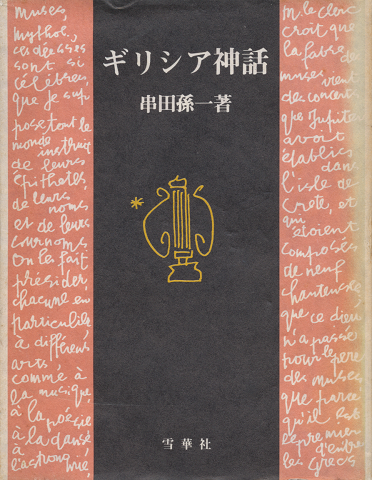 ギリシア神話
串田孫一著
雪華社
muses,
mythol.,
ces déesses
sont si
célèbres,
que je sup
pose tout le
monde instruit
de leurs
épithetes,
de leurs
noms
et de leurs
surnoms
on les fait
présider,
chacune en
particulier
à différens
arts,
comme à
la musique,
à la poésie
à la danse
à l'astrono mie,
m. le clerc
croit que
la fable
des
muses vient
des concerts
que Jupiter
avoit
établis
dans
l'isle de
Crete, et
qui
étoient
composés
de neuf
chanteuses
que ce dieu
n'a passé
pour le pere
des muses
que parce
qu'il est
le premier
d'entre
les Grecs